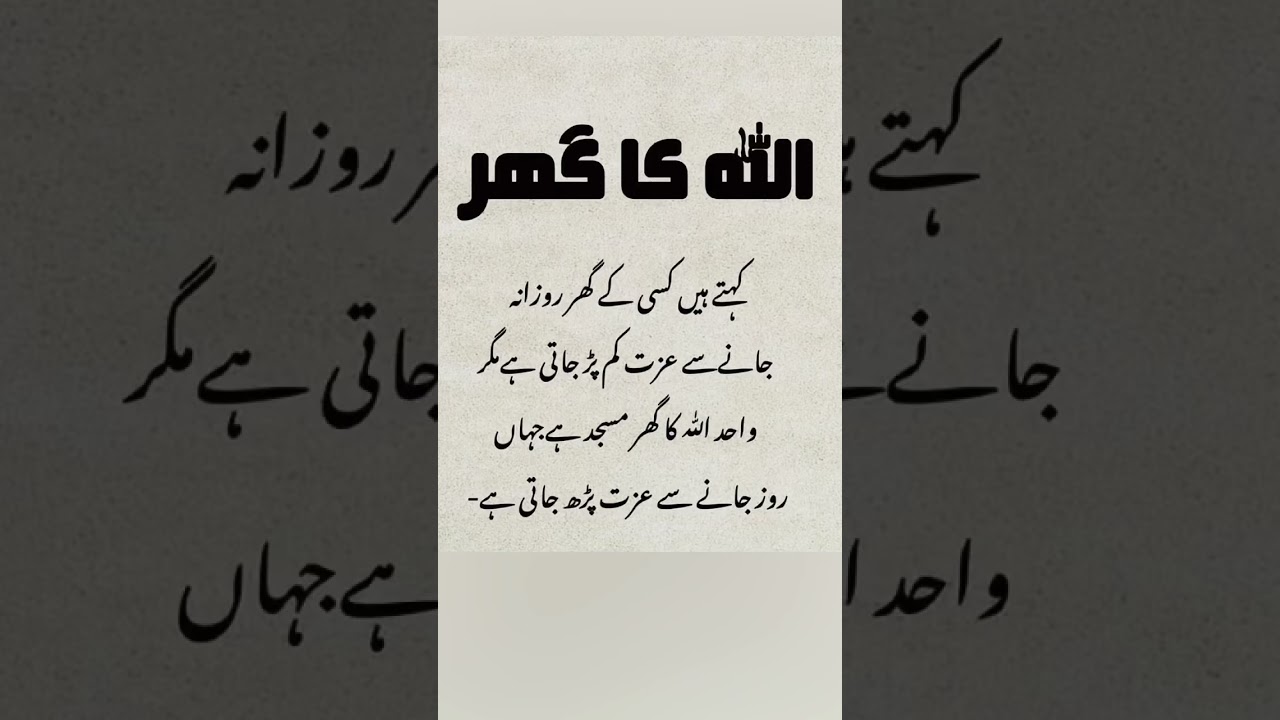 اللہ کا گھر
کہتے ہیں کسی کے گھر روزانہ
جانے سے عزت کم پڑ جاتی ہے مگر
واحد اللہ کا گھر مسجد ہے جہاں
روز جانے سے عزت پڑھ جاتی ہے-